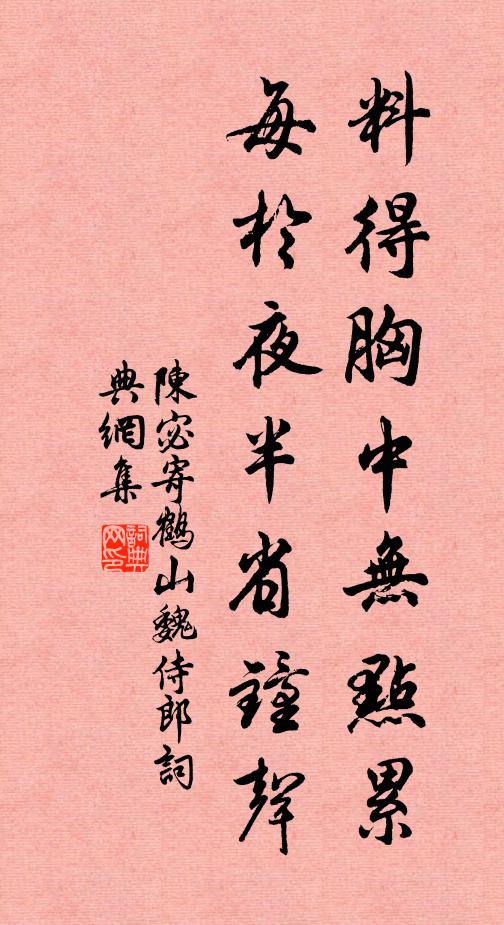 料得胸中無點累
每於夜半省鐘聲
陳宓寄鶴山魏侍郎詞
典網集
詞典
网印